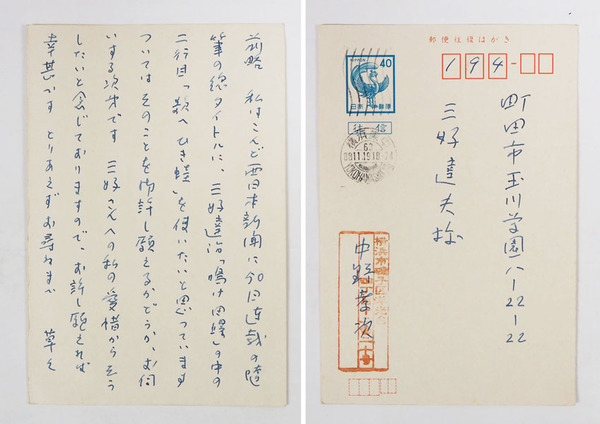 前略　私はこんど西日本新聞に50回連載の随
筆の総タイトルに、三好達治「鳴け四蝉」の中の
二行目「歌へひき蛙」を使いたいと思っています
ついてはそのことを御許し願えるかどうか、お伺
いする次第です 三好さんへの私の愛惜からそう
したいと念じておりますので、お許し願えれば
幸甚です とりあえずお尋ねまで　草々
郵便往復はがき
194-
40
日本郵便
往信
町田市玉川学園八-22-22
三好達夫様
中野孝次